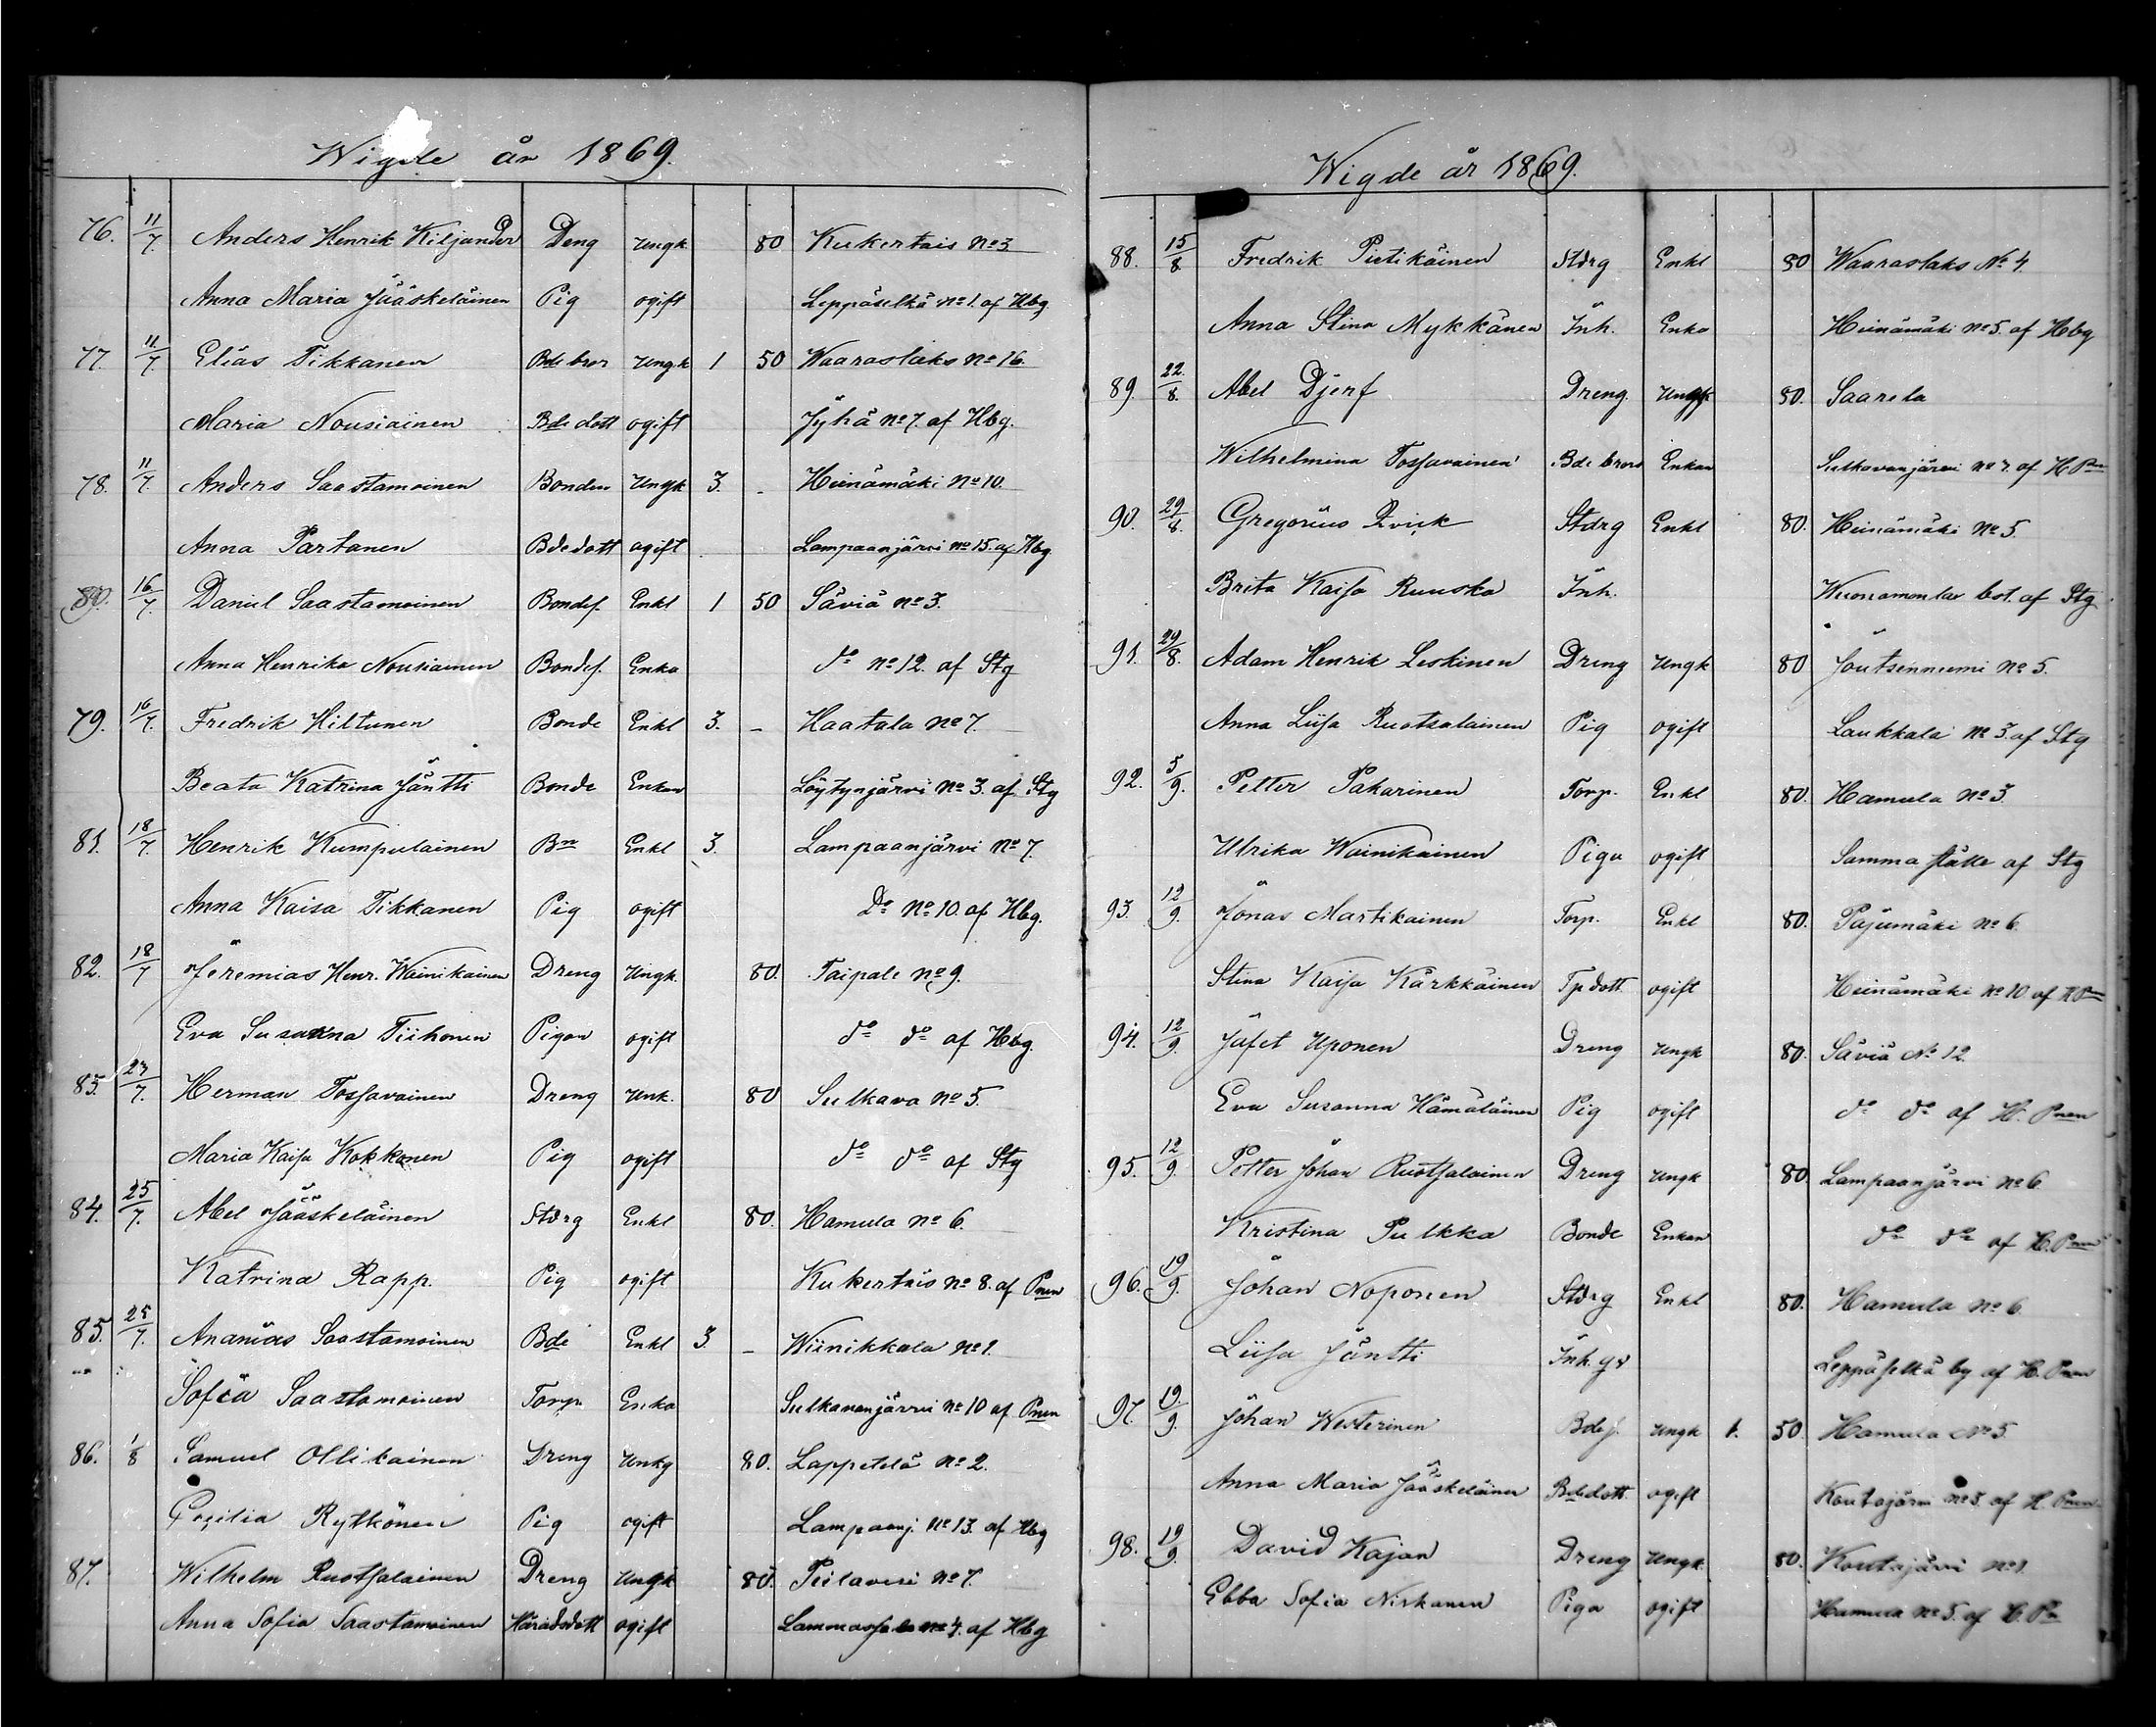 Wigde år 1869.
76. 11/7. Anders Henrik Kiljander Deng Ungk 80 Kukertais No 3
Anna Maria Jääskeläinen Pig ogift Leppäselkä No 1. af Hbg
77. 11/7. Elias Tikkanen Bde bror Ungk 1 50 Waaraslaks No 16.
Maria Nousiainen Bde dott ogift Jyhä No 7. af Hbg.
78. 11/7. Anders Saastamoinen Bonden Ungk 3. - Heinämäki No 10.
Anna Partanen Bdedott ogift Lampaanjärvi No 15. af Hbg
80. 16/7. Daniel Saastamoinen Bondes. Enkl 1 50 Säviä No 3.
Anna Henrika Nousiainen Bondes. Enka do No 12. af Stg
79. 16/7. Fredrik Hiltunen Bonde Enkl 3. - Haatala No 7.
Beata Katrina Jäntti Bonde Enkan Löytynjärvi No 3. af Stg
81. 18/7. Henrik Kumpulainen Bn Enkl 3. Lampaanjärvi No 7.
Anna Kaisa Tikkanen Pig ogift Do No 10. af Hbg.
82. 18/7 Jeremias Henr. Wainikainen Dreng Ungk. 80. Taipale No 9.
Eva Susanna Tiihonen Pigan ogift do do af Hbg.
83. 23/7. Herman Tossavainen Dreng Unk. 80 Sulkava No 5.
Maria Kaisa Kokkonen Pig ogift do do af Stg
84. 25/7. Abel Jääskeläinen Stdrg Enkl 80. Hamula No 6.
Katrina Rapp. Pig ogift Kukertais No 8. af Pnen
85. 25/7. Ananias Saastamoinen Bde Enkl 3. - Wiinikkala No 1.
Sofia Saastamoinen Torp. Enka Sulkavanjärvi No 10 af Pnen
86. 1/8 Samuel Ollikainen Dreng Unkg 80. Lappetelä No 2.
Cecilia Rytkönen Pig ogift Lampaanj. No 13. af Hbg
87. Wilhelm Ruotsalainen Dreng Ungk 80. Pielavesi No 7.
Anna Sofia Saastamoinen Häradsdott ogift Lammassalo No 4. af Hbg
Wigde år 1869.
88. 15/8. Fredrik Pietikäinen Stdrg Enkl 80 Waaraslaks No 4.
Anna Stina Mykkänen Inh. Enka Heinämäki No 5. af Hbg
89. 22/8. Abel Djerf Dreng. Ungk 80. Saarela
Wilhelmina Tossavainen Bde brors Enkan Sulkavanjärvi No 7. af H Pn
90. 29/8. Gregorius Qvick Stdrg Enkl 80. Heinämäki No 5.
Brita Kaisa Ruuska Inh. Wuonamonlax bol. af Stg
91. 29/8. Adam Henrik Leskinen Dreng Ungk 80 Joutsenniemi No 5.
Anna Liisa Ruotsalainen Pig ogift Laukkala No 3. af Stg
92. 5/9. Petter Pakarinen Torp. Enkl 80. Hamula No 3.
Ulrika Wainikainen Piga ogift Samma ställe af Stg
93. 12/9. Jonas Martikainen Torp. Enkl 80. Pajumäki No 6.
Stina Kaisa Kärkkäinen Tp dott. ogift Heinämäki No 10 af H Pn
94. 12/9. Jafet Uponen Dreng Ungk 80. Säviä No 12.
Eva Susanna Hämäläinen Pig ogift do do af H. Pnen
95. 12/9. Petter Johan Ruotsalainen Dreng Ungk 80. Lampaanjärvi No 6.
Kristina Pulkka Bonde Enkan do do af H. Pnen
96. 19/9. Johan Noponen Stdrg Enkl 80. Hamula No 6.
Liisa Jäntti Inh. Leppäselkä by af H. Pnen
97. 19/9. Johan Westerinen Bdes. Ungk 1. 50. Hamula No 5.
Anna Maria Jääskeläinen Bdedott. ogift Koutajärvi No 5. af H Pnen
98. 19/9. David Kajan Dreng Ungk. 80. Koutajärvi No 1.
Ebba Sofia Niskanen Piga ogift Hamula No 5. af H. Pn